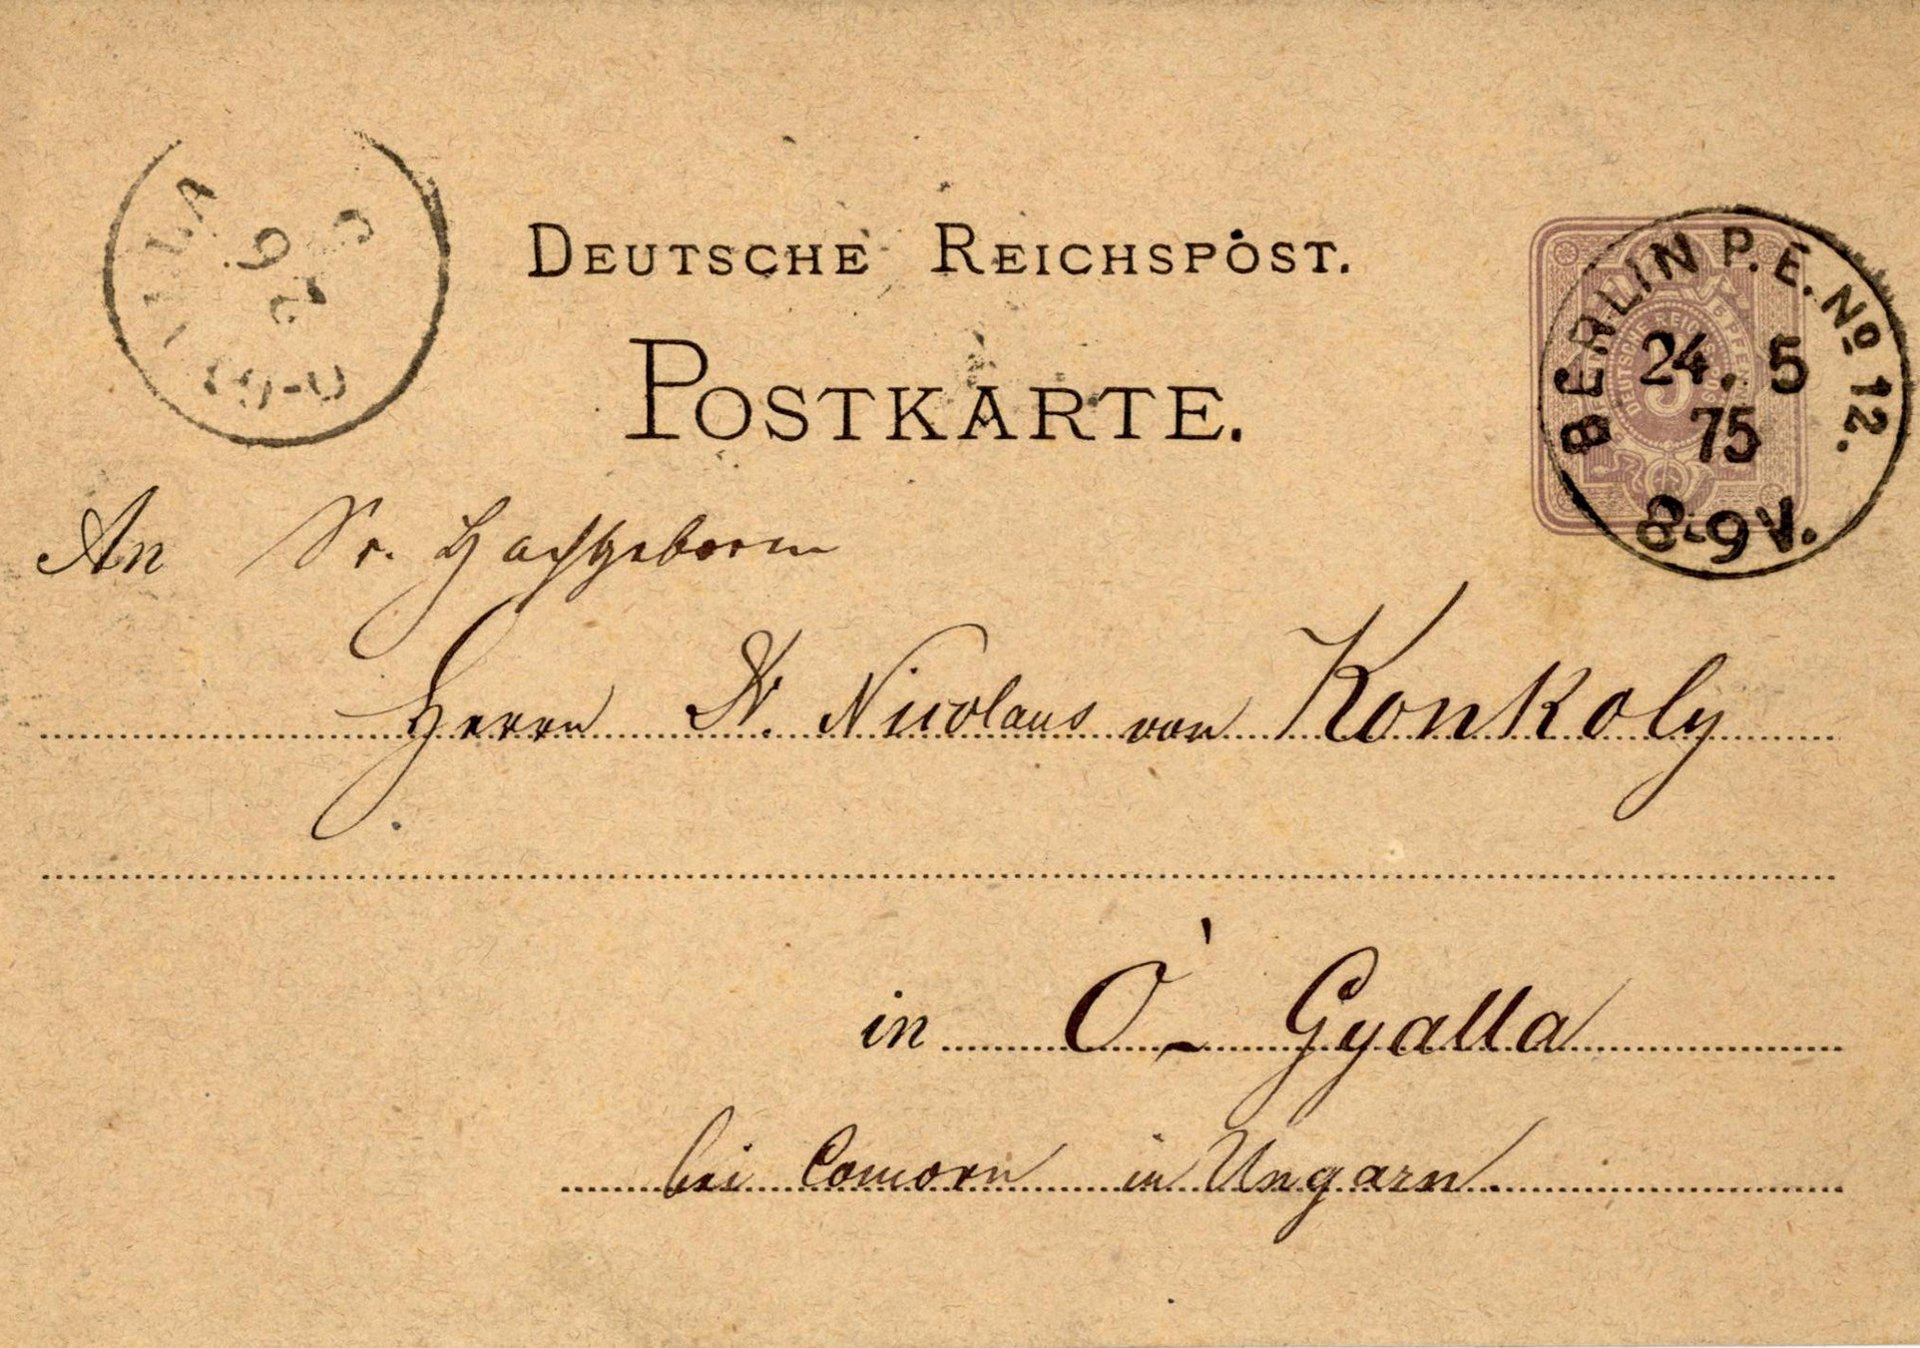 DEUTSCHE REICHSPOST.
POSTKARTE.
BERLIN P. E. No 12.
24. 5
75
8-9 V.
5 PFENNIG
DEUTSCHE REICHSPOST
26
5
An Sr. Hochgeboren
Herrn Dr. Nicolaus von Konkoly
in Ó-Gyalla
bei Comorn in Ungarn.